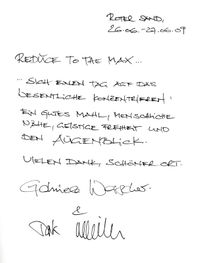 ROTER SAND,
26.06.-27.06.09
REDUCE TO THE MAX...
"SICH EINEN TAG AUF DAS
WESENTLICHE KONZENTRIEREN"
EIN GUTES MAHL, MENSCHLICHE
NÄHE, GEISTIGE FREIHEIT UND
DEN AUGENBLICK.
VIELEN DANK, SCHÖNER ORT.
&
Dirk